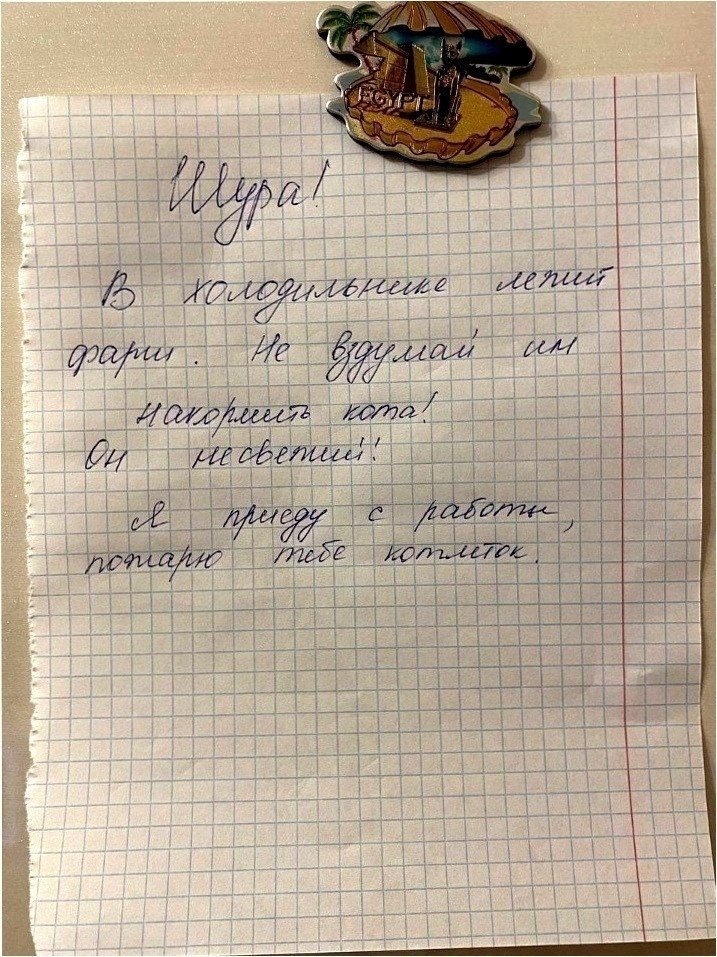 EGYPT
Шура!
В холодильнике лежит
фарш. Не вздумай им
накормить кота!
Он несвежий!
Я приеду с работы,
пожарю тебе котлеток.